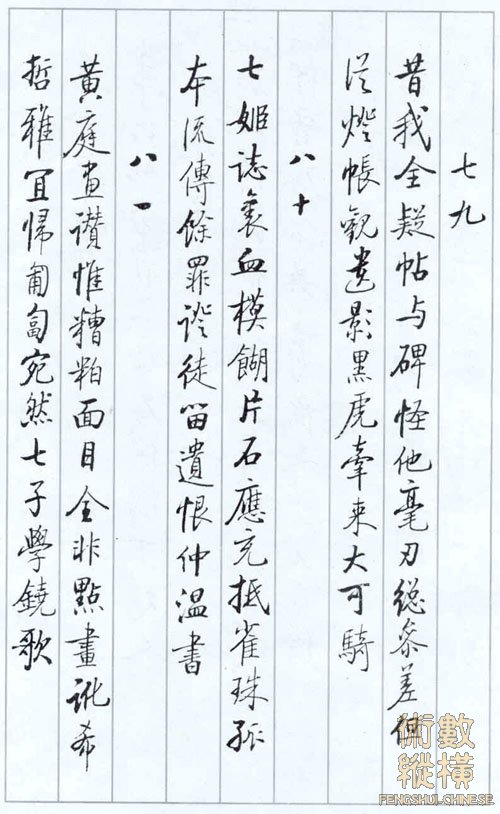 七九
昔我全疑帖与碑怪他毫刃總参差但
從燈帳觀遺影黑虎牽来大可騎
八十
七姬誌裏血模餬片石應充抵雀珠孤
本流傳餘罪證徒留遺恨仲溫書
八一
黃庭畫讚惟糟粕面目全非點畫訛希
哲雅宜帰匍匐宛然七子學鐃歌
術數
縱橫
FENGSHUI-CHINESE